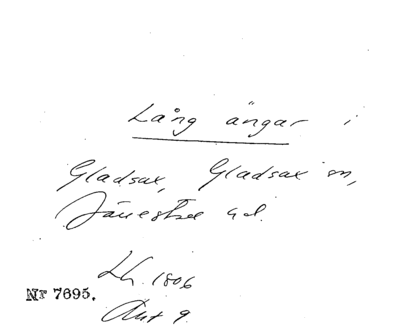 Lång ängar i
Gladsax, Gladsax sn,
Järrestad hd.
Lh. 1806
Nr 7695.
Akt 9